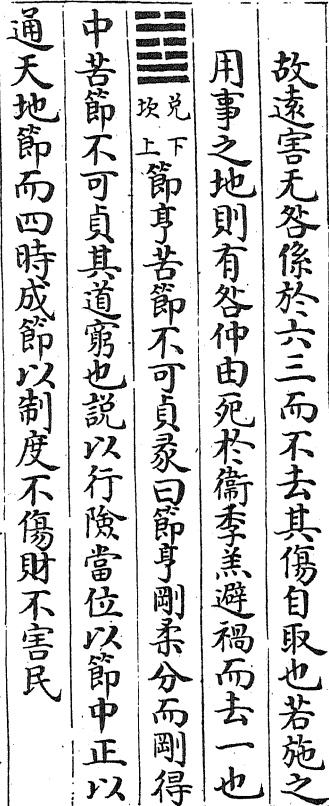 故遠害无咎係於六三而不去其傷自取也若施之
用事之地則有咎仲由死於衞季羔避禍而去一也
䷻兌下坎上節亨苦節不可貞彖曰節亨剛柔分而剛得
中苦節不可貞其道窮也說以行險當位以節中正以
通天地節而四時成節以制度不傷財不害民